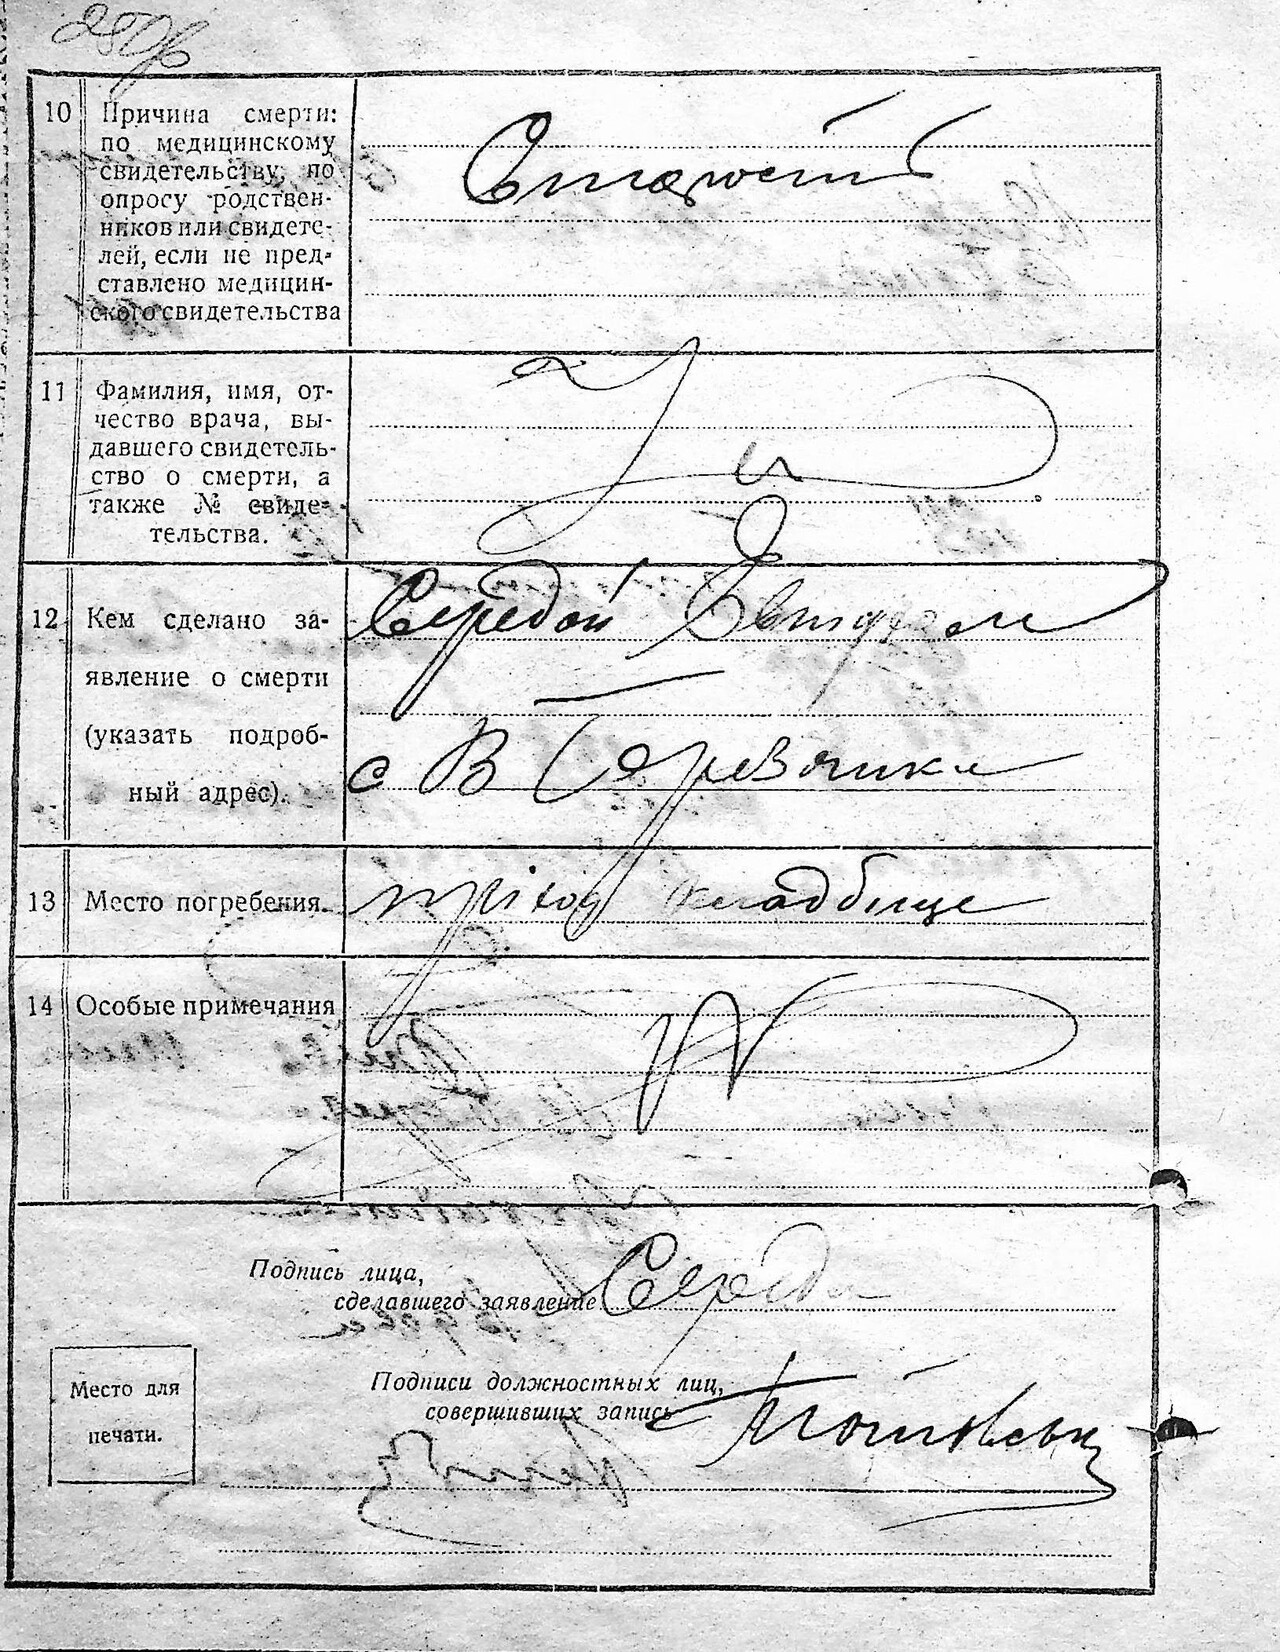 10 Причина смерти:
по медицинскому
свидетельству, по
опросу родствен-
ников или свидете-
лей, если не пред-
ставлено медицин-
ского свидетельства
Старость
11 Фамилия, имя, от-
чество врача, вы-
давшего свидетель-
ство о смерти, а
также № свиде-
тельства.
12 Кем сделано за-
явление о смерти
(указать подроб-
ный адрес).
Середой
с В Березанка
13 Место погребения.
кладбище
14 Особые примечания
Подпись лица,
сделавшего заявление Середа
Подписи должностных лиц,
совершивших запись
Место для
печати.